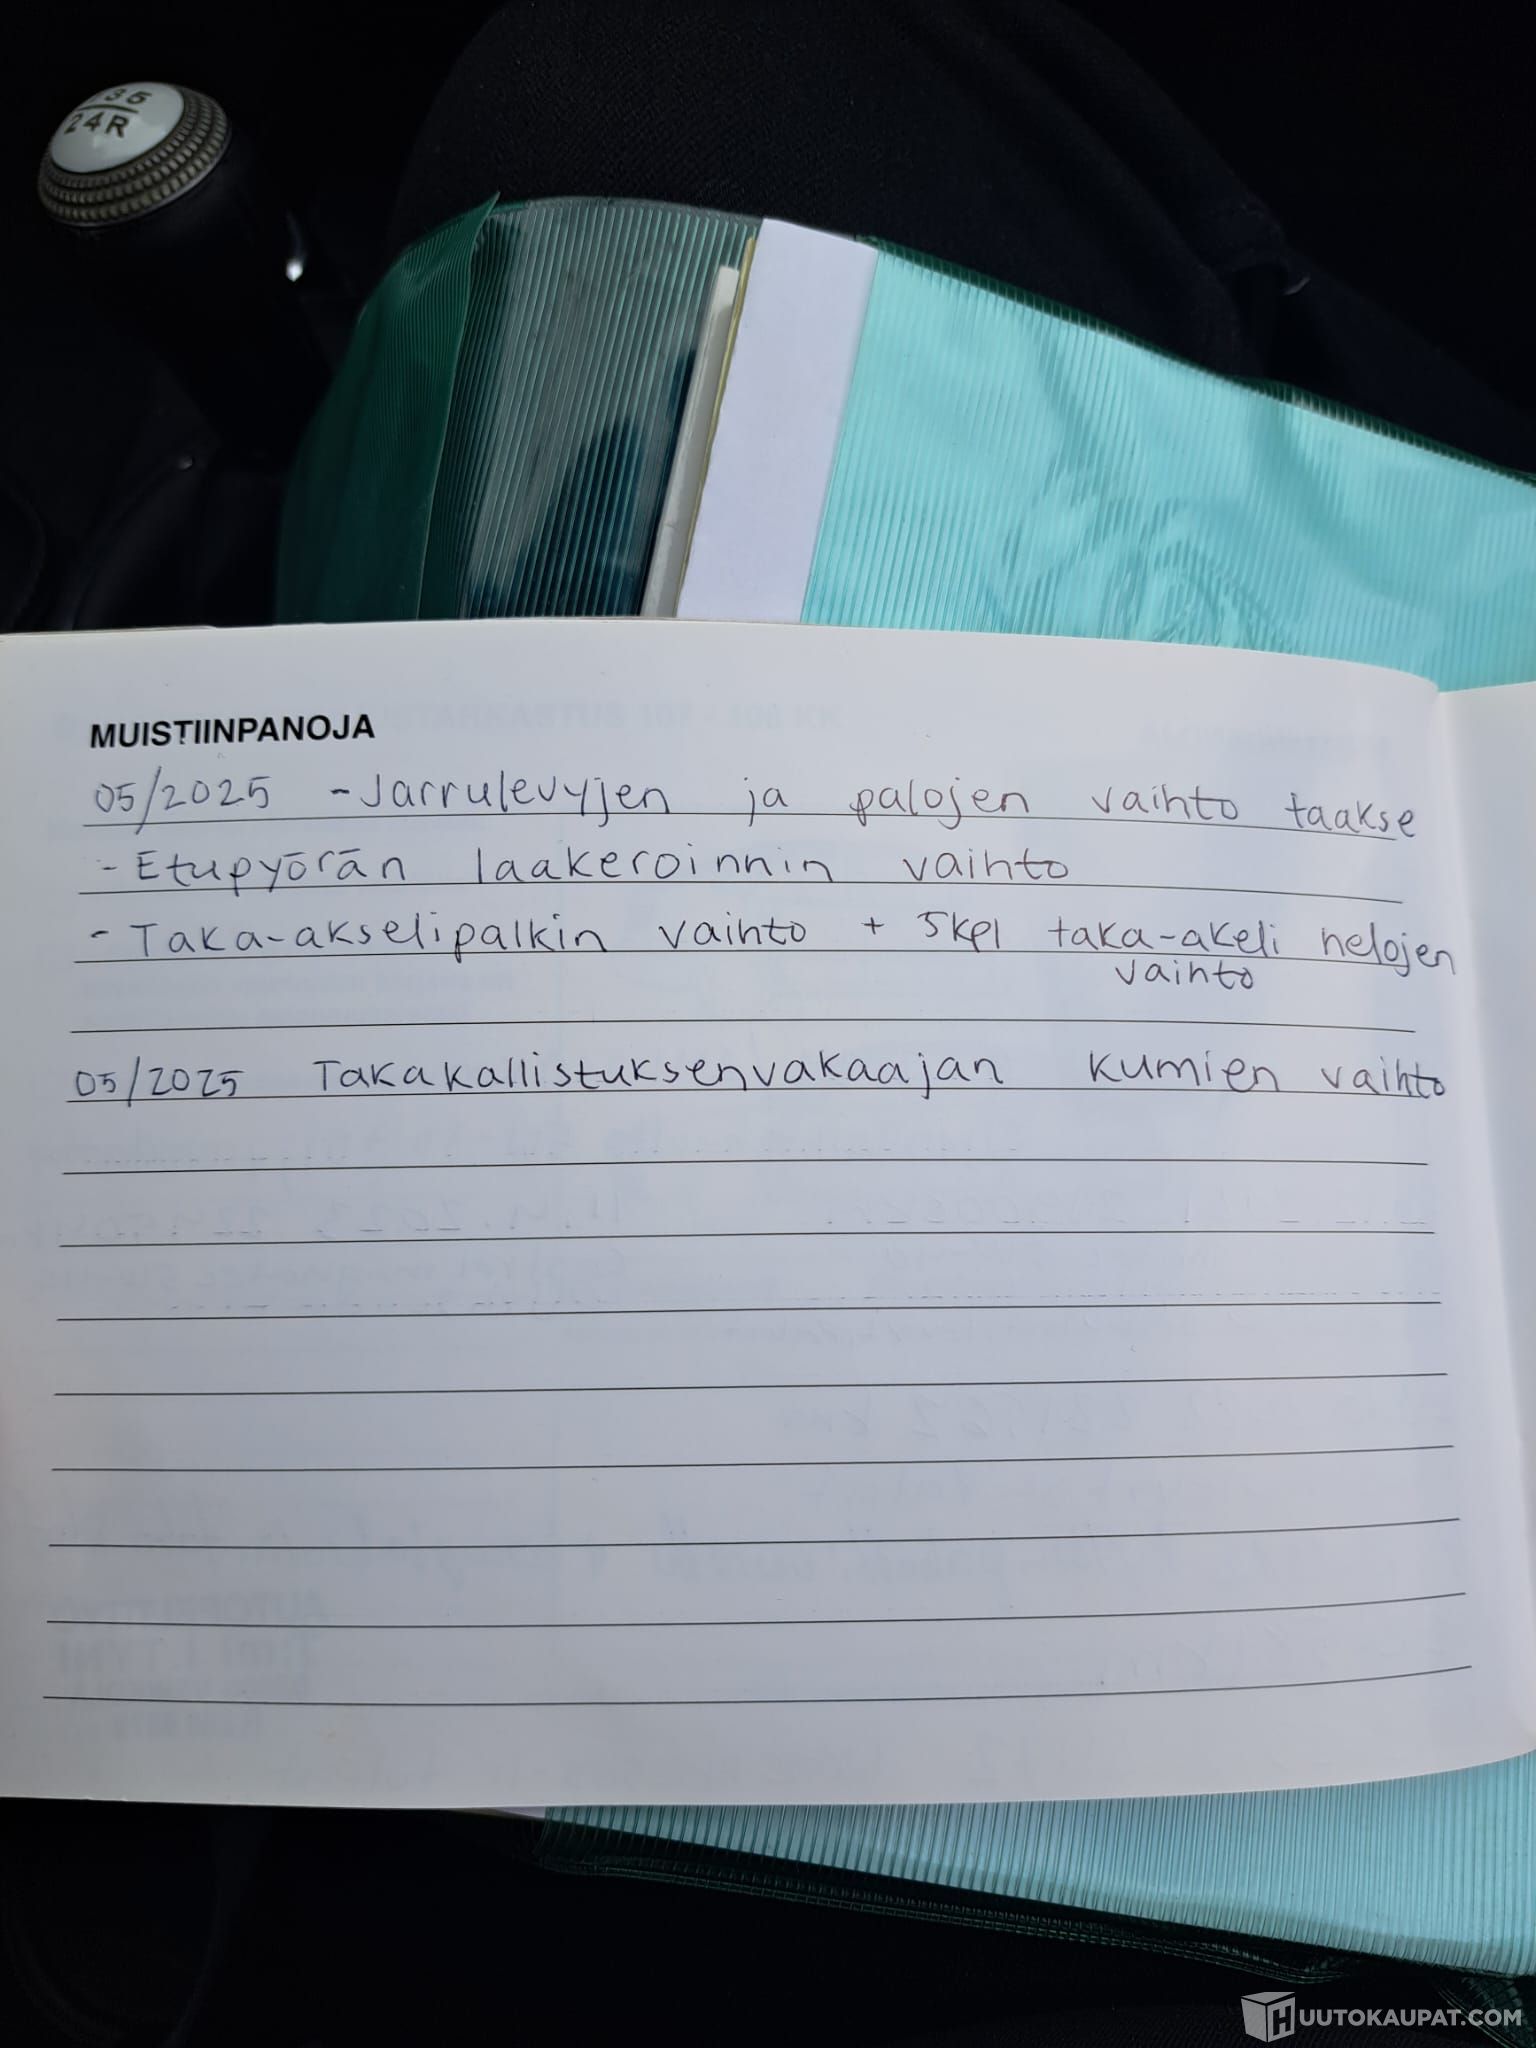 35
24R
MUISTIINPANOJA
05/2025 - Jarrulevyjen ja palojen vaihto taakse
- Etupyörän laakeroinnin vaihto
- Taka-akselipalkin vaihto + 5kpl taka-akeli helojen
vaihto
05/2025 Takakallistuksenvakaajan kumien vaihto
HUUTOKAUPAT.COM